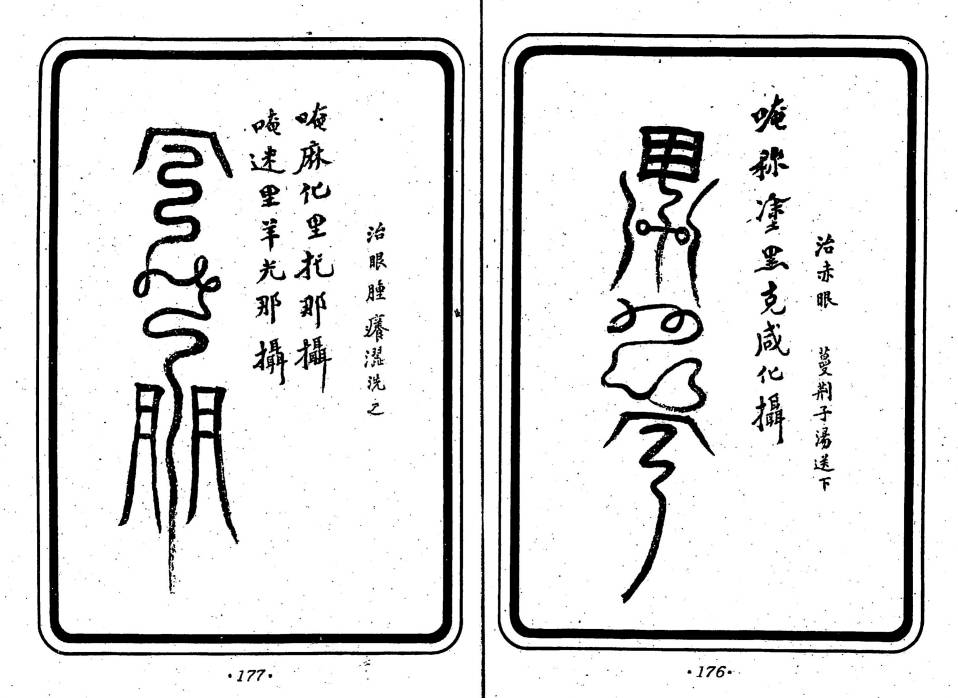 治赤眼 蔓荆子湯送下
唵称塗黑克咸化攝
·176·
治眼腫癢澀洗之
唵麻化里托那攝
唵迷里羊光那攝
·177·